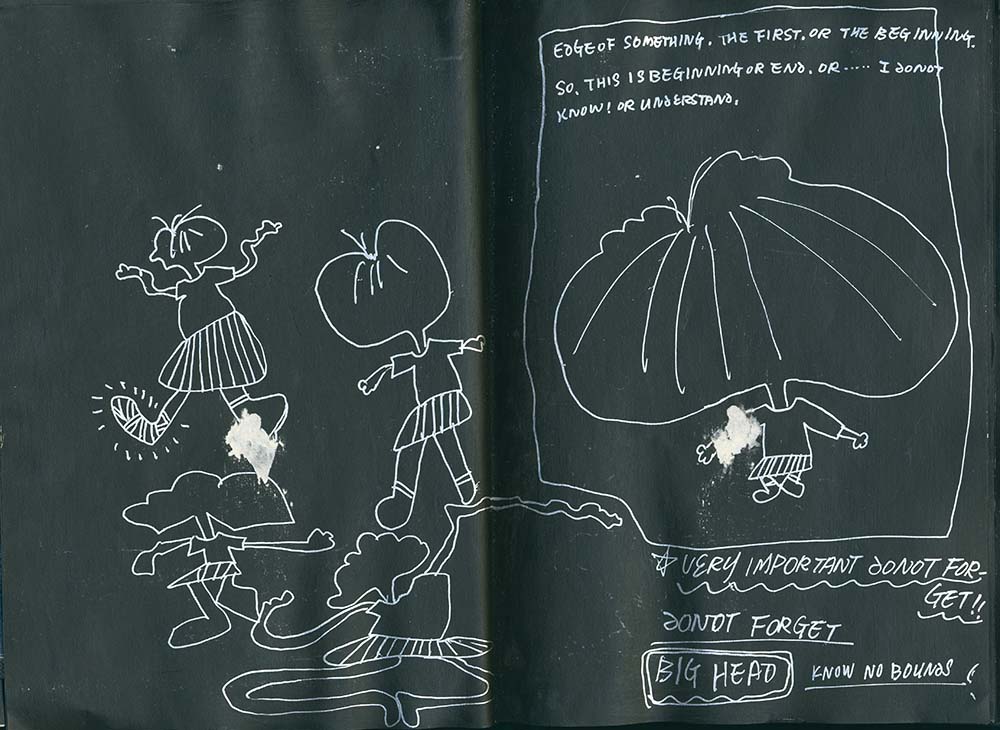 EDGE OF SOMETHING. THE FIRST. OR THE BEGINNING.
SO. THIS IS BEGINNING OR END. OR ····· I DONOT
KNOW! OR UNDERSTAND.
☆ VERY IMPORTANT DONOT FOR-
GET!!
DONOT FORGET
BIG HEAD KNOW NO BOUNDS